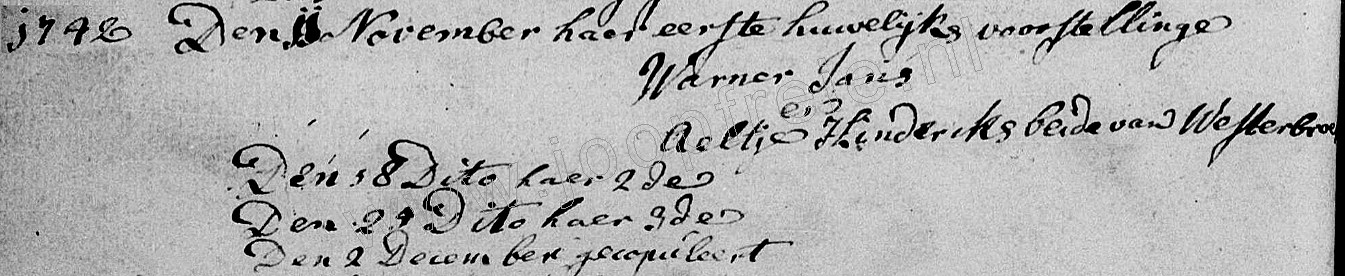 1742 Den 11 November haer eerste huwelijks voorstellinge
Warner Jans
en
Aeltje Hindericks beide van Westerbroe
Den 18 Dito haer 2de
Den 25 Dito haer 3de
Den 2 December gecopuleert